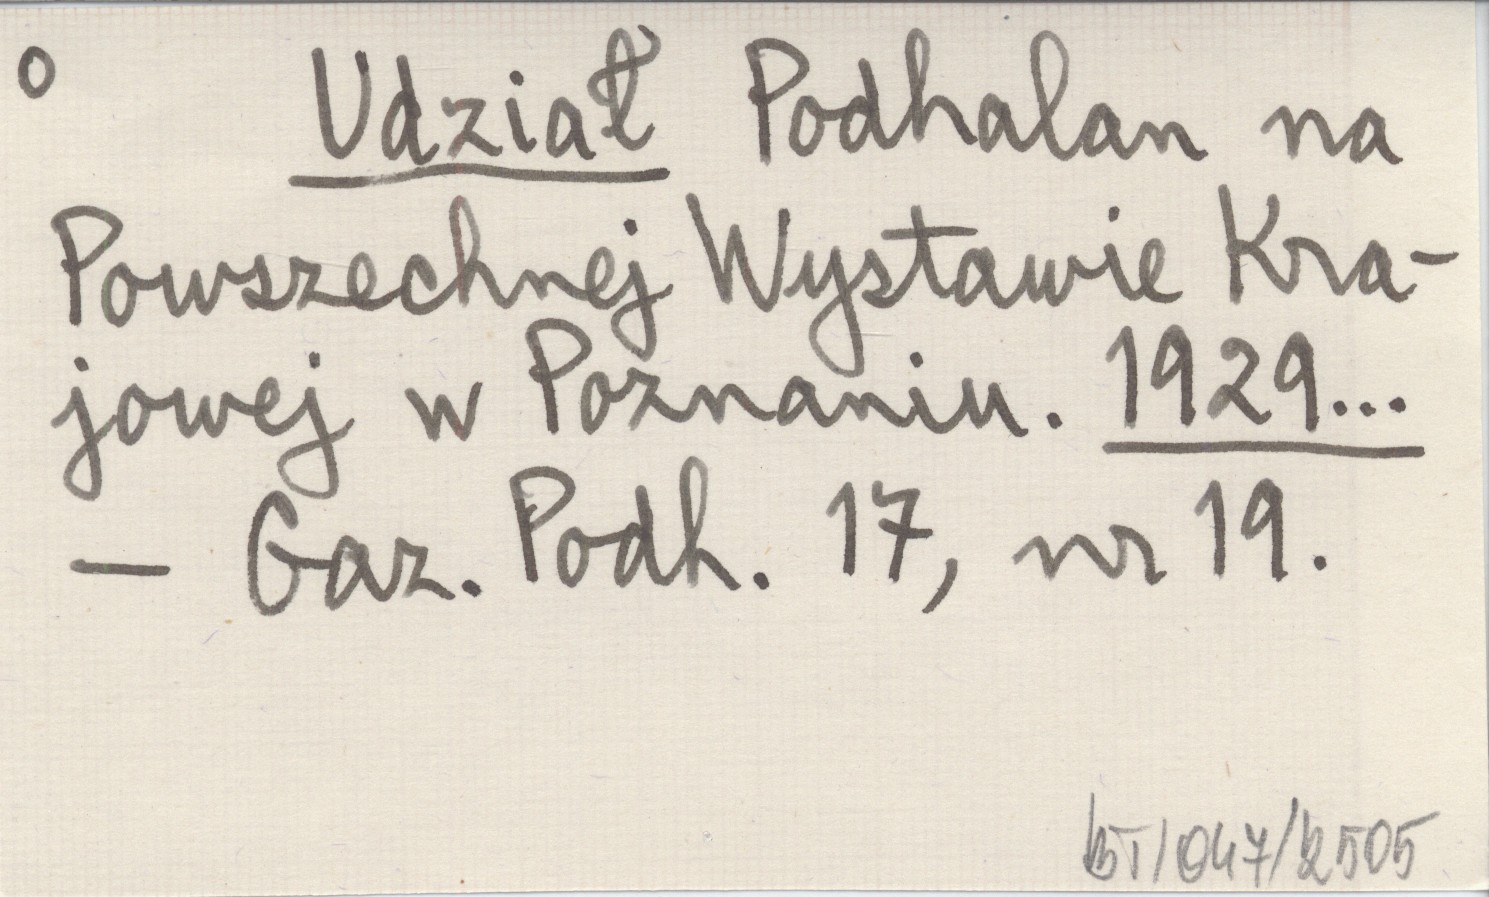 o Udział Podhalan na
Powszechnej Wystawie Kra-
jowej w Poznaniu. 1929...
— Gaz. Podh. 17, nr 19.
BT/047/2505